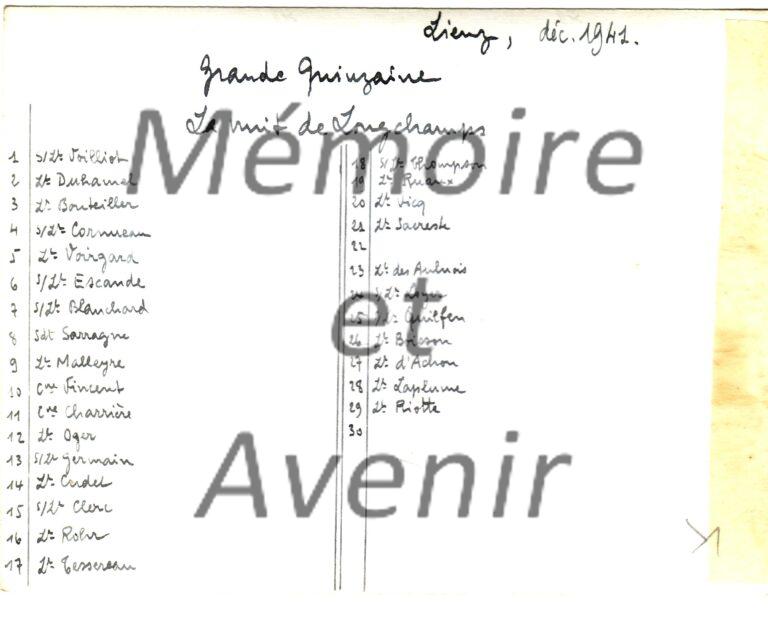 Lienz, déc. 1941.
Grande Quinzaine
La nuit de Longchamps
1 S/Lt Voilliot
2 Lt Duhamel
3 Lt Bouteiller
4 S/Lt Cornueau
5 Lt Voirgard
6 S/Lt Escande
7 S/Lt Blanchard
8 Sdt Sarragne
9 Lt Malleyre
10 Cne Vincent
11 Cne Charrière
12 Lt Oger
13 S/Lt Germain
14 Lt Cadet
15 S/Lt Clerc
16 Lt Rohr
17 Lt Tessereau
18 S/Lt Thompson
19 Lt Ruaux
20 Lt Vicq
21 Lt Sacreste
22
23 Lt des Aulnois
24 S/Lt
25 Lt Guilfen
26 Lt
27 Lt d'Achon
28 Lt Laplume
29 Lt Riotte
30
Mémoire
et
Avenir